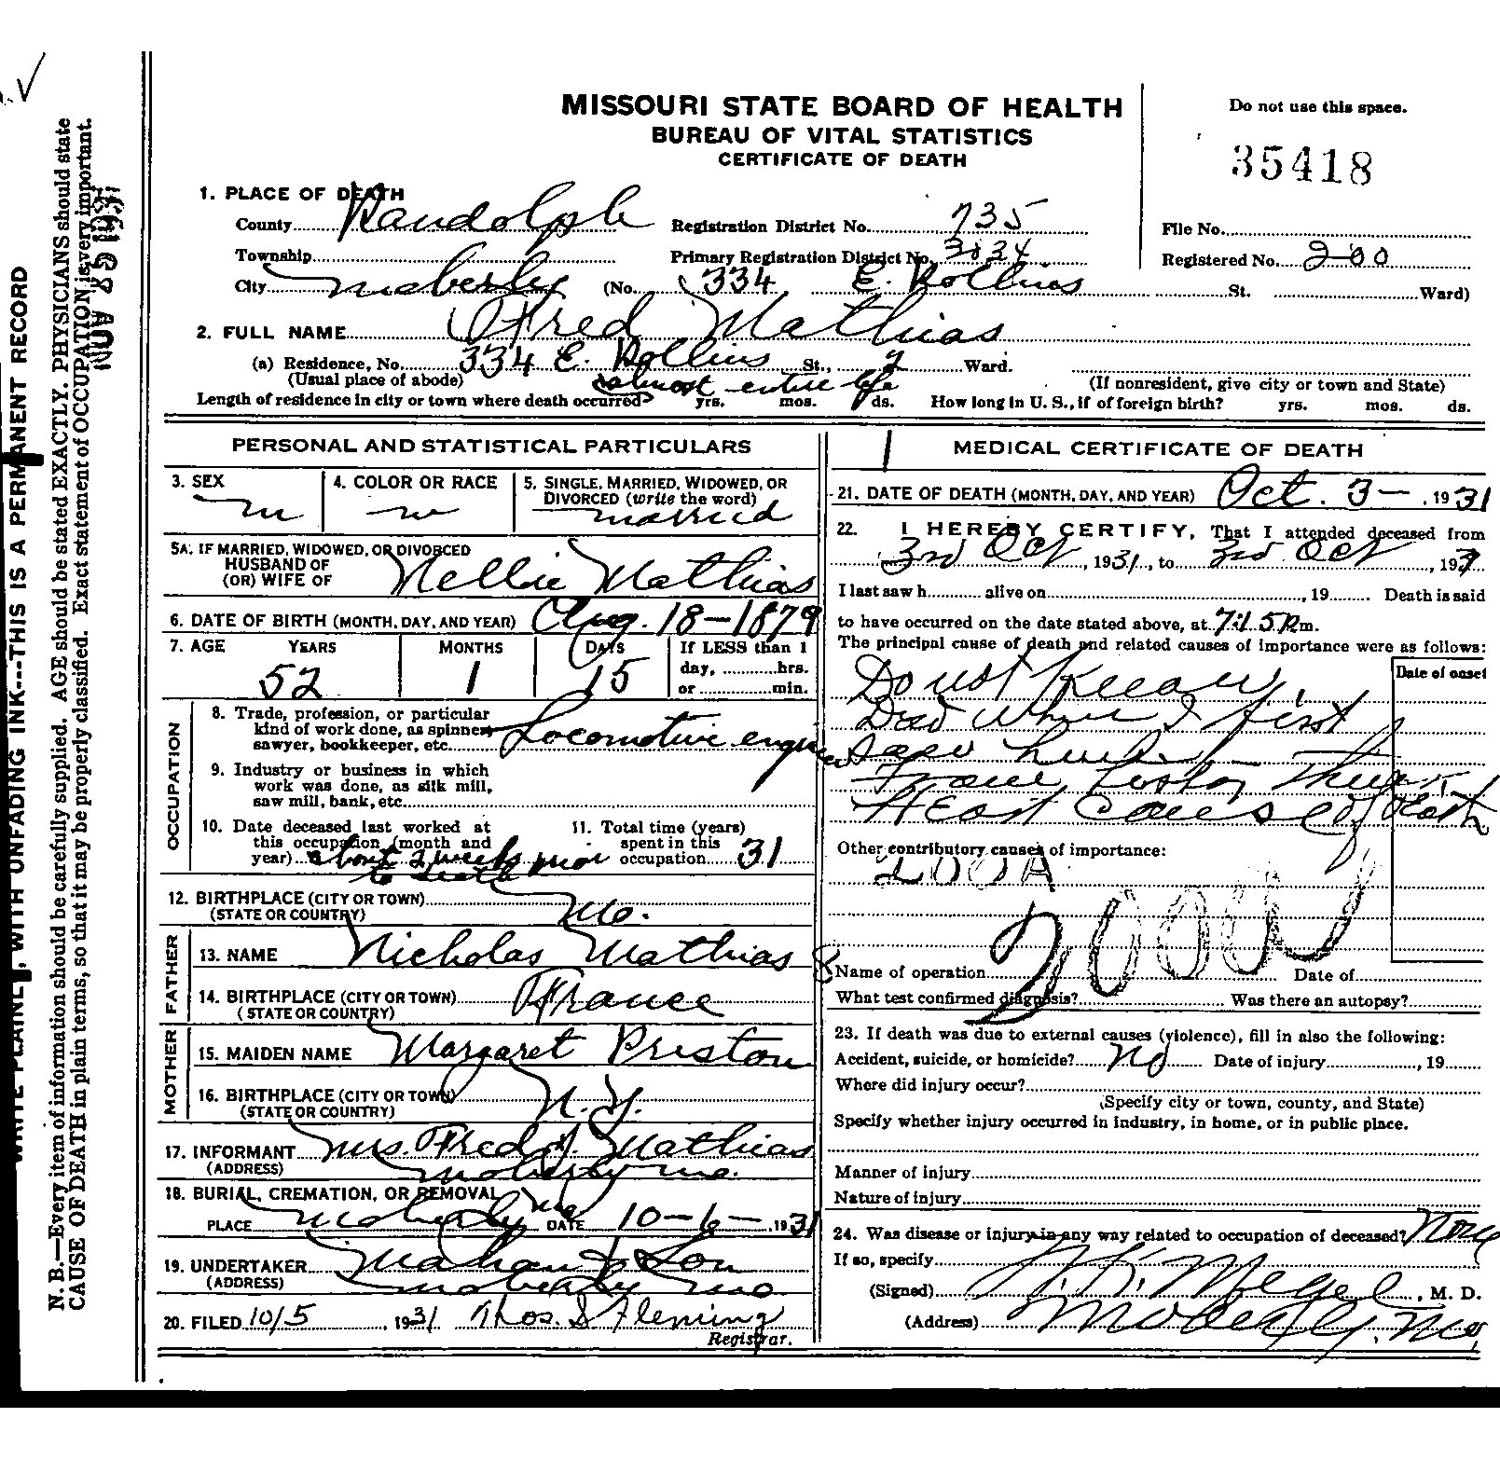 MISSOURI STATE BOARD OF HEALTH
BUREAU OF VITAL STATISTICS
CERTIFICATE OF DEATH
Do not use this space.
35418
1. PLACE OF DEATH
County Randolph Registration District No. 735 File No.
Township Primary Registration District No. 3034 Registered No. 200
City Moberly (No. 334 E. Rollins St. Ward)
2. FULL NAME Fred Mathias
(a) Residence, No. 334 E. Rollins St., 2 Ward.
(Usual place of abode) (If nonresident, give city or town and State)
almost entire life
Length of residence in city or town where death occurred yrs. mos. ds. How long in U. S., if of foreign birth? yrs. mos. ds.
PERSONAL AND STATISTICAL PARTICULARS
3. SEX m
4. COLOR OR RACE w
5. SINGLE, MARRIED, WIDOWED, OR DIVORCED (write the word) married
5A. IF MARRIED, WIDOWED, OR DIVORCED
HUSBAND OF
(OR) WIFE OF Nellie Mathias
6. DATE OF BIRTH (MONTH, DAY, AND YEAR) Aug. 18-1879
7. AGE YEARS MONTHS DAYS If LESS than 1
day, hrs.
or min.
52 1 15
OCCUPATION
8. Trade, profession, or particular
kind of work done, as spinner,
sawyer, bookkeeper, etc. Locomotive engineer
9. Industry or business in which
work was done, as silk mill,
saw mill, bank, etc.
10. Date deceased last worked at
this occupation (month and
year) about 2 weeks prior
to death
11. Total time (years)
spent in this
occupation 31
12. BIRTHPLACE (CITY OR TOWN)
(STATE OR COUNTRY) Mo.
FATHER
13. NAME Nicholas Mathias
14. BIRTHPLACE (CITY OR TOWN) France
(STATE OR COUNTRY)
MOTHER
15. MAIDEN NAME Margaret Preston
16. BIRTHPLACE (CITY OR TOWN) N.Y.
(STATE OR COUNTRY)
17. INFORMANT Mrs. Fred J. Mathias
(ADDRESS) Moberly Mo.
18. BURIAL, CREMATION, OR REMOVAL
PLACE Moberly Mo DATE 10-6- 1931
19. UNDERTAKER Mahan & Son
(ADDRESS) Moberly Mo
20. FILED 10/5, 1931 Thos. S Fleming
Registrar.
MEDICAL CERTIFICATE OF DEATH
21. DATE OF DEATH (MONTH, DAY, AND YEAR) Oct. 3-, 1931
22. I HEREBY CERTIFY, That I attended deceased from
3rd Oct, 1931, to 3rd Oct, 193
I last saw h alive on , 19 Death is said
to have occurred on the date stated above, at 7:15 P m.
The principal cause of death and related causes of importance were as follows:
Date of onset
Do not know,
Dead when I first
saw him.
From history think
Heart cause of death
Other contributory causes of importance:
200A
200W
Name of operation Date of
What test confirmed diagnosis? Was there an autopsy?
23. If death was due to external causes (violence), fill in also the following:
Accident, suicide, or homicide? No Date of injury , 19
Where did injury occur?
(Specify city or town, county, and State)
Specify whether injury occurred in industry, in home, or in public place.
Manner of injury
Nature of injury
24. Was disease or injury in any way related to occupation of deceased? None
If so, specify
(Signed) , M. D.
(Address) Moberly, Mo.
WRITE PLAINLY, WITH UNFADING INK---THIS IS A PERMANENT RECORD
N. B.—Every item of information should be carefully supplied. AGE should be stated EXACTLY. PHYSICIANS should state
CAUSE OF DEATH in plain terms, so that it may be properly classified. Exact statement of OCCUPATION is very important.
NOV 28 1931